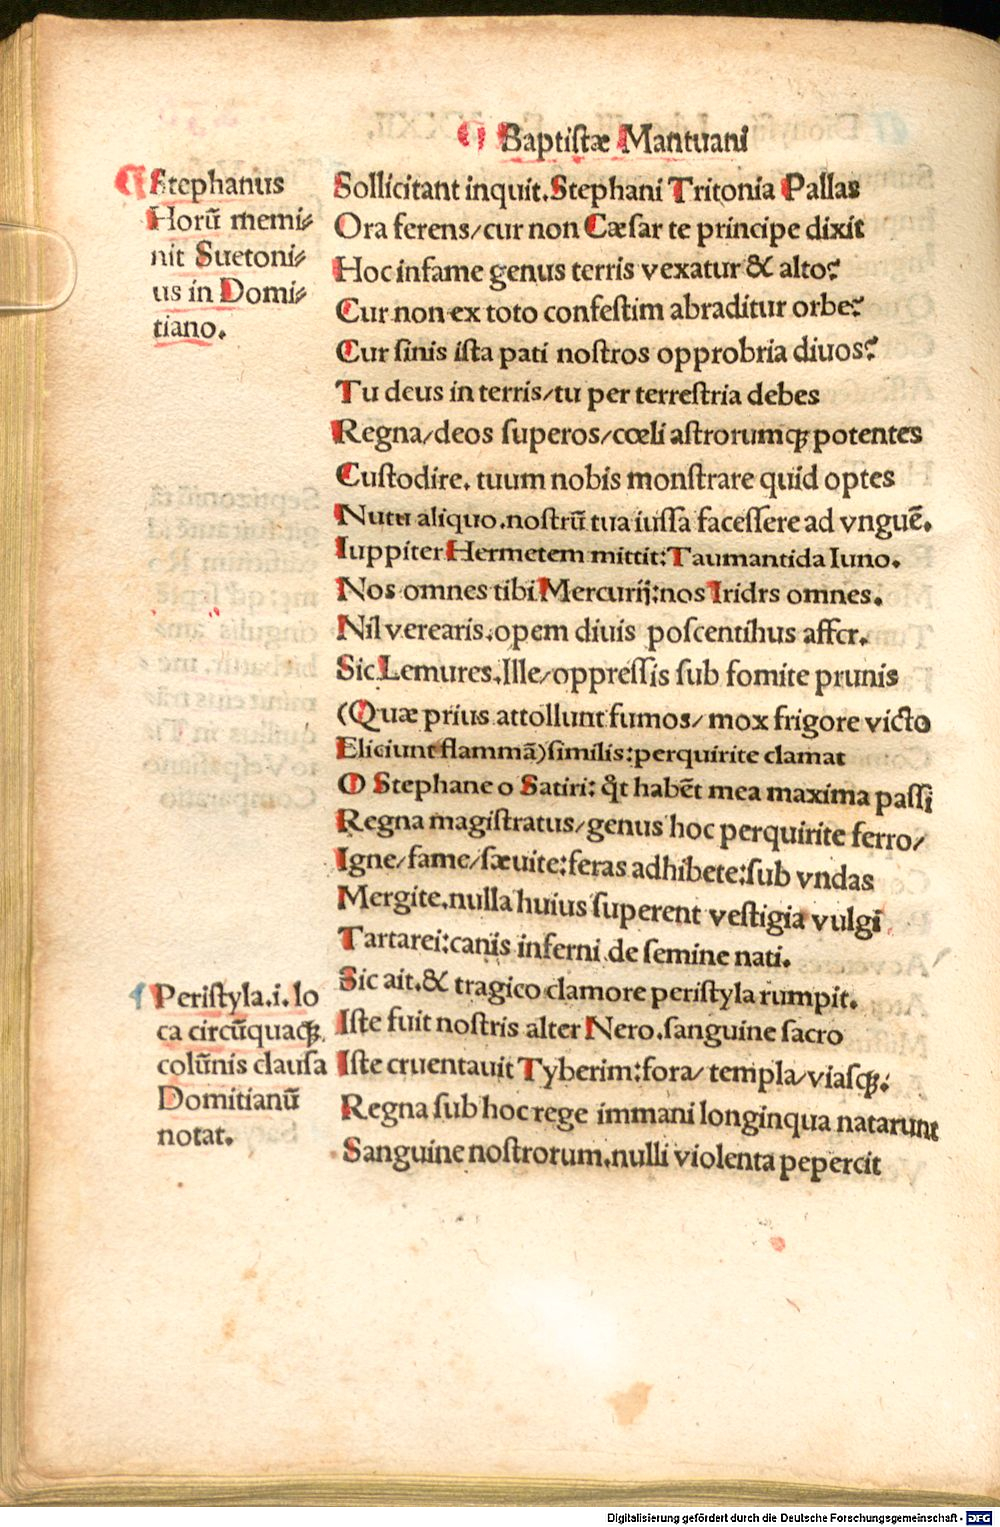 ¶ Baptiſtæ Mantuani
¶ Stephanus
Horū memi⸗
nit Suetoni⸗
us in Domi⸗
tiano.
Sollicitant inquit. Stephani Tritonia Pallas
Ora ferens/cur non Cæſar te principe dixit
Hoc infame genus terris vexatur & alto?
Cur non ex toto confeſtim abraditur orbe?
Cur ſinis iſta pati noſtros opprobria diuos?
Tu deus in terris/tu per terreſtria debes
Regna/deos ſuperos/cœli aſtrorumqꝫ potentes
Cuſtodire. tuum nobis monſtrare quid optes
Nutu aliquo. noſtrū tua iuſſa faceſſere ad vnguē.
Iuppiter Hermetem mittit: Taumantida Iuno.
Nos omnes tibi Mercurij: nos Iridrs omnes.
Nil verearis. opem diuis poſcentihus affer.
Sic Lemures. Ille/oppreſſis ſub fomite prunis
(Quæ prius attollunt fumos/ mox frigore victo
Eliciunt flammā) ſimilis: perquirite clamat
O Stephane o Satiri: qͥt habēt mea maxima paſſi
Regna magiſtratus/genus hoc perquirite ferro/
Igne/fame/ſæuite: feras adhibete: ſub vndas
Mergite. nulla huius ſuperent veſtigia vulgi
Tartarei: canis inferni de ſemine nati.
Sic ait. & tragico clamore periſtyla rumpit.
Iſte fuit noſtris alter Nero. ſanguine ſacro
Iſte cruentauit Tyberim: fora/ templa/viaſqꝫ:
Regna ſub hoc rege immani longinqua natarunt
Sanguine noſtrorum. nulli violenta pepercit
¶ Periſtyla. i. lo
ca circūquaqꝫ
colūnis clauſa
Domitianū
notat.
Digitalisierung gefördert durch die Deutsche Forschungsgemeinschaft - DFG